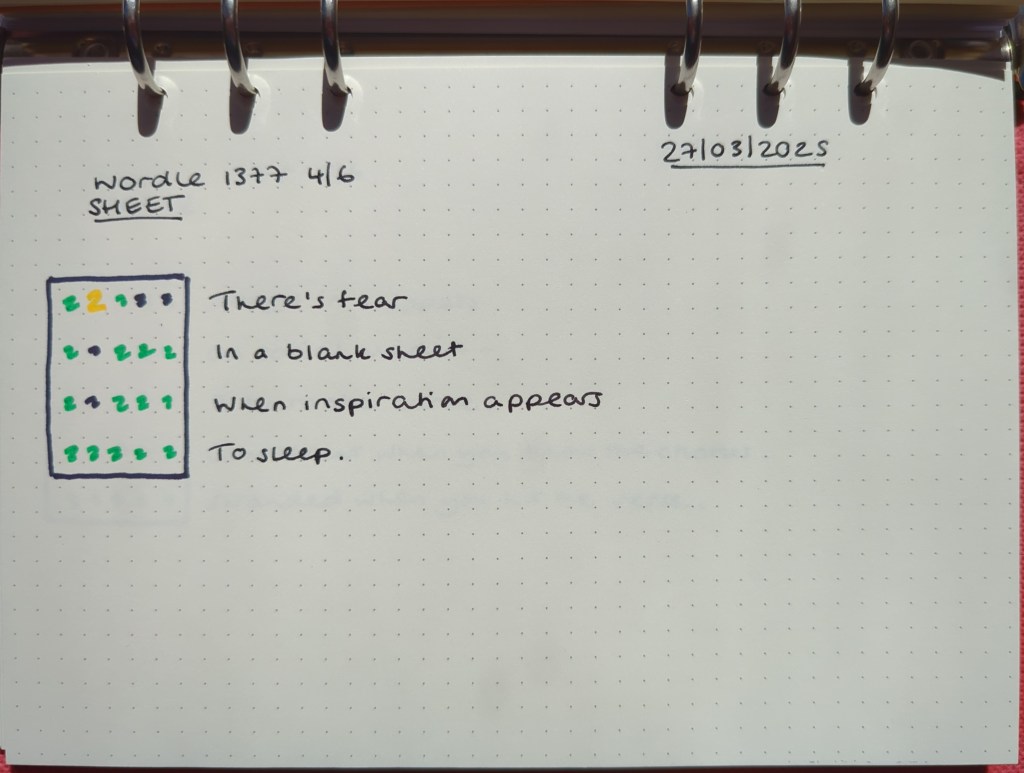 27/03/2025
Wordle 1377 4/6
SHEET
There's fear
In a blank sheet
When inspiration appears
To sleep.